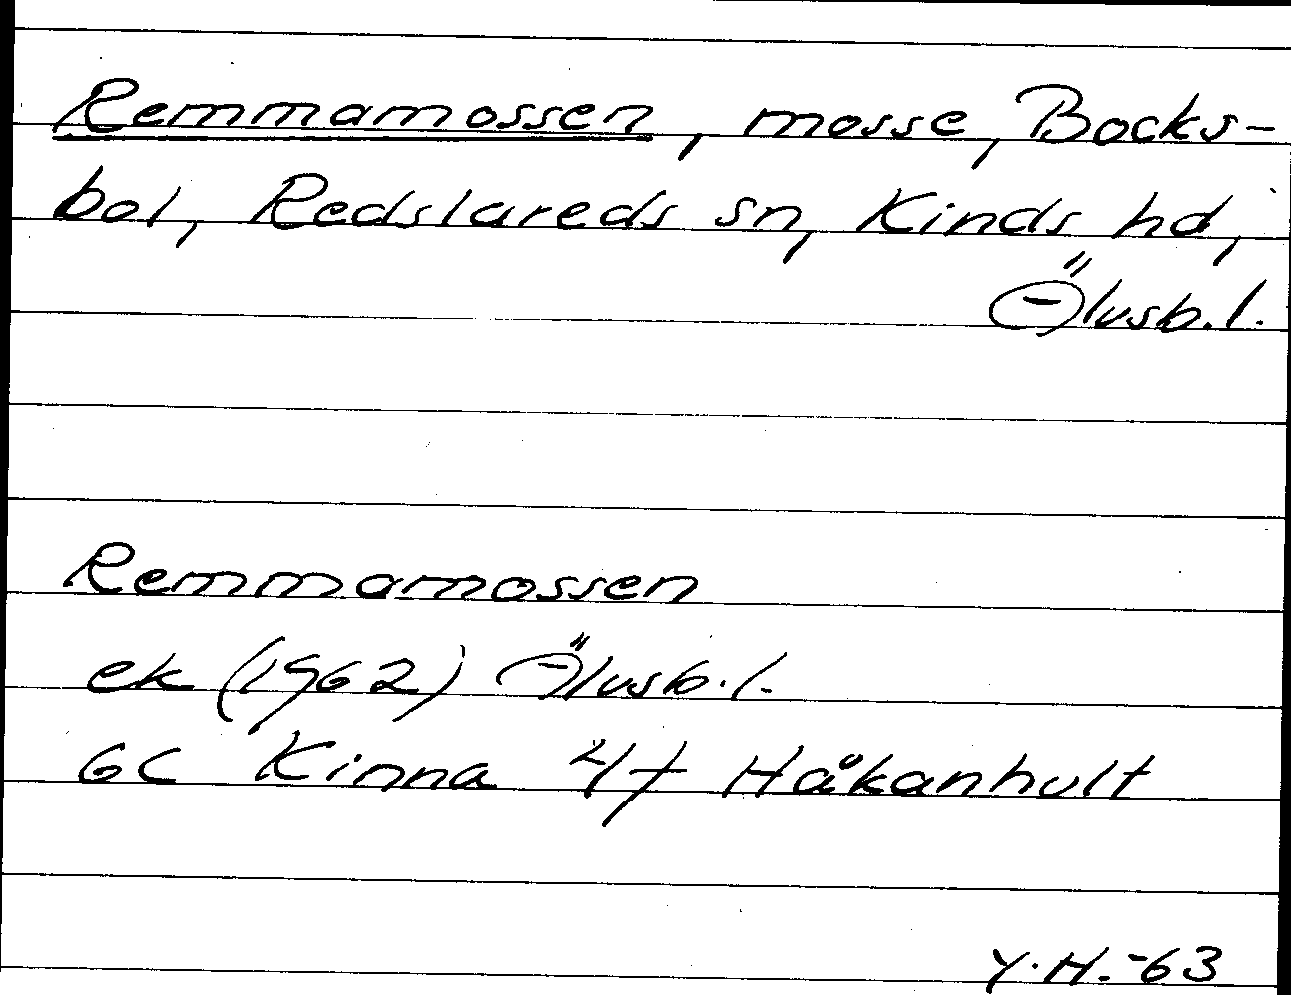 Remmamossen, mosse, Bocks-
bol, Redslareds sn, Kinds hd,
Älvsb. l.
Remmamossen
ek (1962) Älvsb. l.
6C Kinna 4f Håkanhult
Y.H.-63